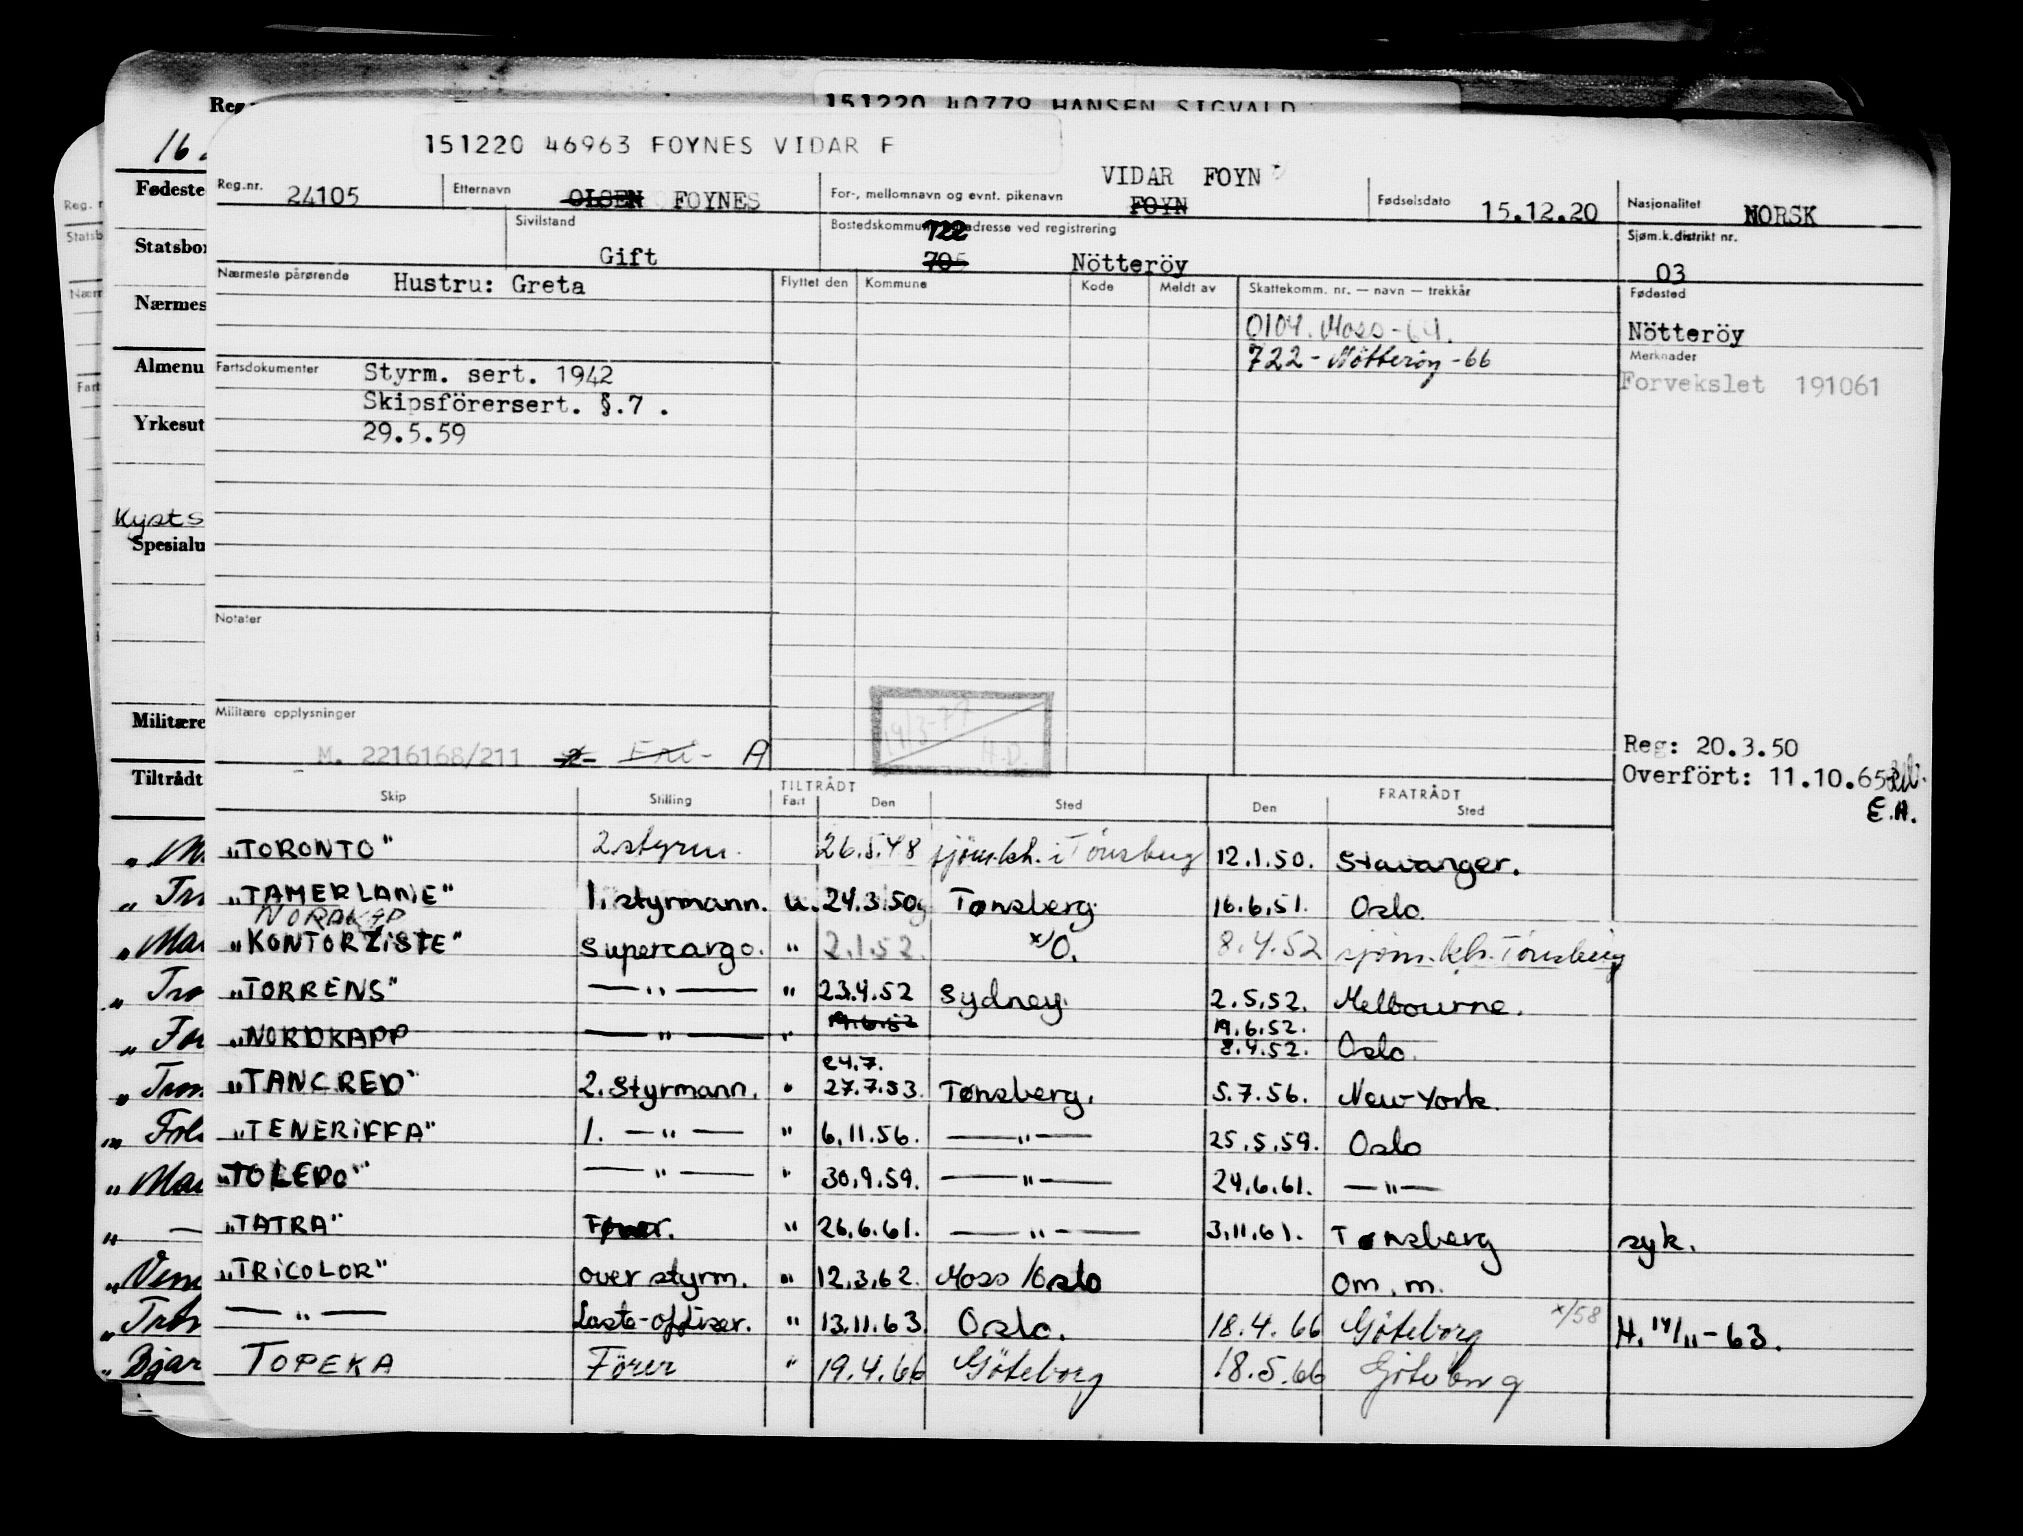 151220 40779 HANSEN SIGVALD
Reg
16
151220 46963 FOYNES VIDAR F
Reg.nr. 24105 Etternavn OLSEN FOYNES For-, mellomnavn og evnt. pikenavn VIDAR FOYN FOYN Fødselsdato 15.12.20 Nasjonalitet NORSK
Sivilstand Gift Bostedskommu adresse ved registrering 722 705 Nötteröy Sjøm.k.distrikt nr. 03
Nærmeste pårørende Hustru: Greta Flyttet den Kommune Kode Meldt av Skattekomm. nr. — navn — trekkår Fødested
0104. Moss - 64. Nötteröy
722 - Nötteröy - 66 Merknader
Fartsdokumenter Styrm. sert. 1942 Forvekslet 191061
Skipsförersert. §.7 .
29.5.59
Notater
Militære opplysninger
M. 2216168/211 A
14/3-77
H.D.
Reg: 20.3.50
Overfört: 11.10.65
E.H.
TILTRÅDT FRATRÅDT
Skip Stilling Fart Den Sted Den Sted
"TORONTO" 2 styrm. 26.5.48 sjöm.kh. i Tönsberg 12.1.50. Stavanger.
"TAMERLANE" 1. styrmann. u. 24.3.50 Tønsberg. 16.6.51. Oslo.
NORDKAP
"KONTORLISTE" Supercargo. " 2.1.52. x) O. 8.4.52 sjöm.kh. Tönsberg
"TORRENS" — " — " 23.4.52 Sydney. 2.5.52. Melbourne.
19.6.52 19.6.52.
"NORDKAPP — " — " 8.4.52. Oslo.
24.7.
"TANCRED" 2. Styrmann. " 27.7.53. Tønsberg. 5.7.56. New York.
"TENERiFFA" 1. — " — " 6.11.56. — " — 25.5.59. Oslo
"TOLEDO" — " — " 30.9.59. — " — 24.6.61. — " —
"TATRA" " 26.6.61. — " — 3.11.61. Tønsberg syk.
"TRiCOLOR" over styrm. " 12.3.62. Moss / Oslo Om. m.
— " — Laste-offiser. " 13.11.63. Oslo. 18.4.66 Göteborg x/58 H. 14/11-63.
TOPEKA Förer " 19.4.66 Göteborg 18.5.66 Göteborg
Reg. n
Statsb
Nærm
Fart
Fødeste
Statsbor
Nærmes
Almenu
Yrkesut
Kysts
Spesialu
Militære
Tiltrådt